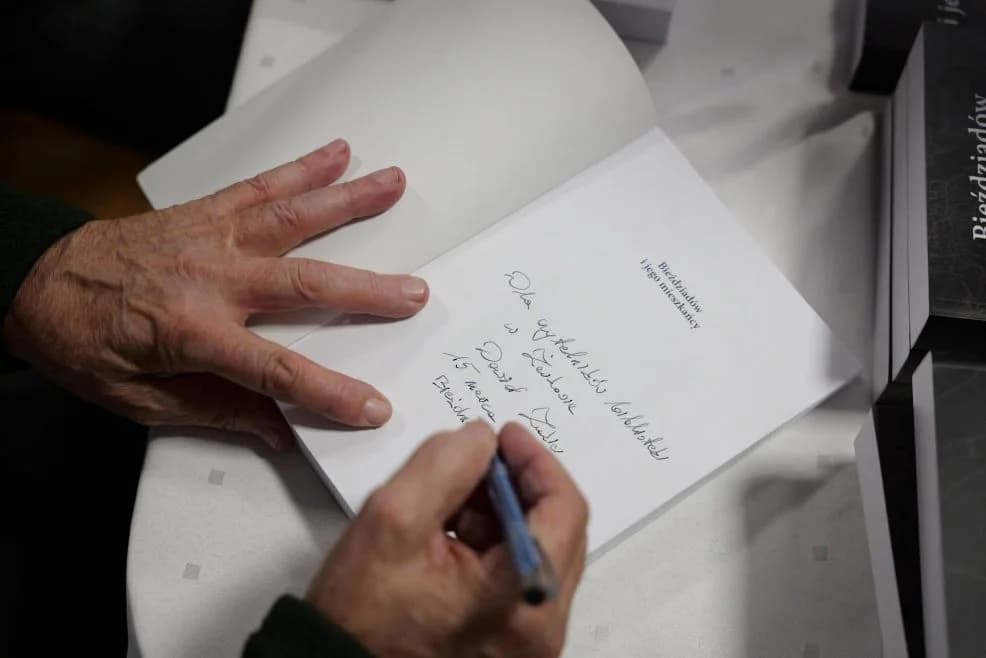 Bieździadów
i jego mieszkańcy
Dla czytelników biblioteki
w
Dawid
15 marca
Bieździa
Bieździadów
i je